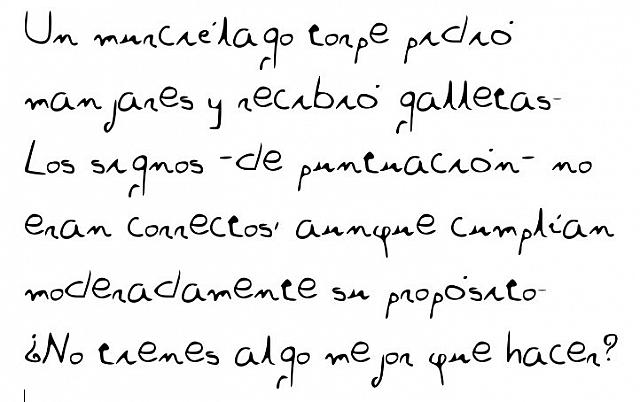 Un murciélago torpe pidió
manjares y recibió galletas-
Los signos -de puntuación- no
eran correctos, aunque cumplían
moderadamente su propósito-
¿No tienes algo mejor que hacer?